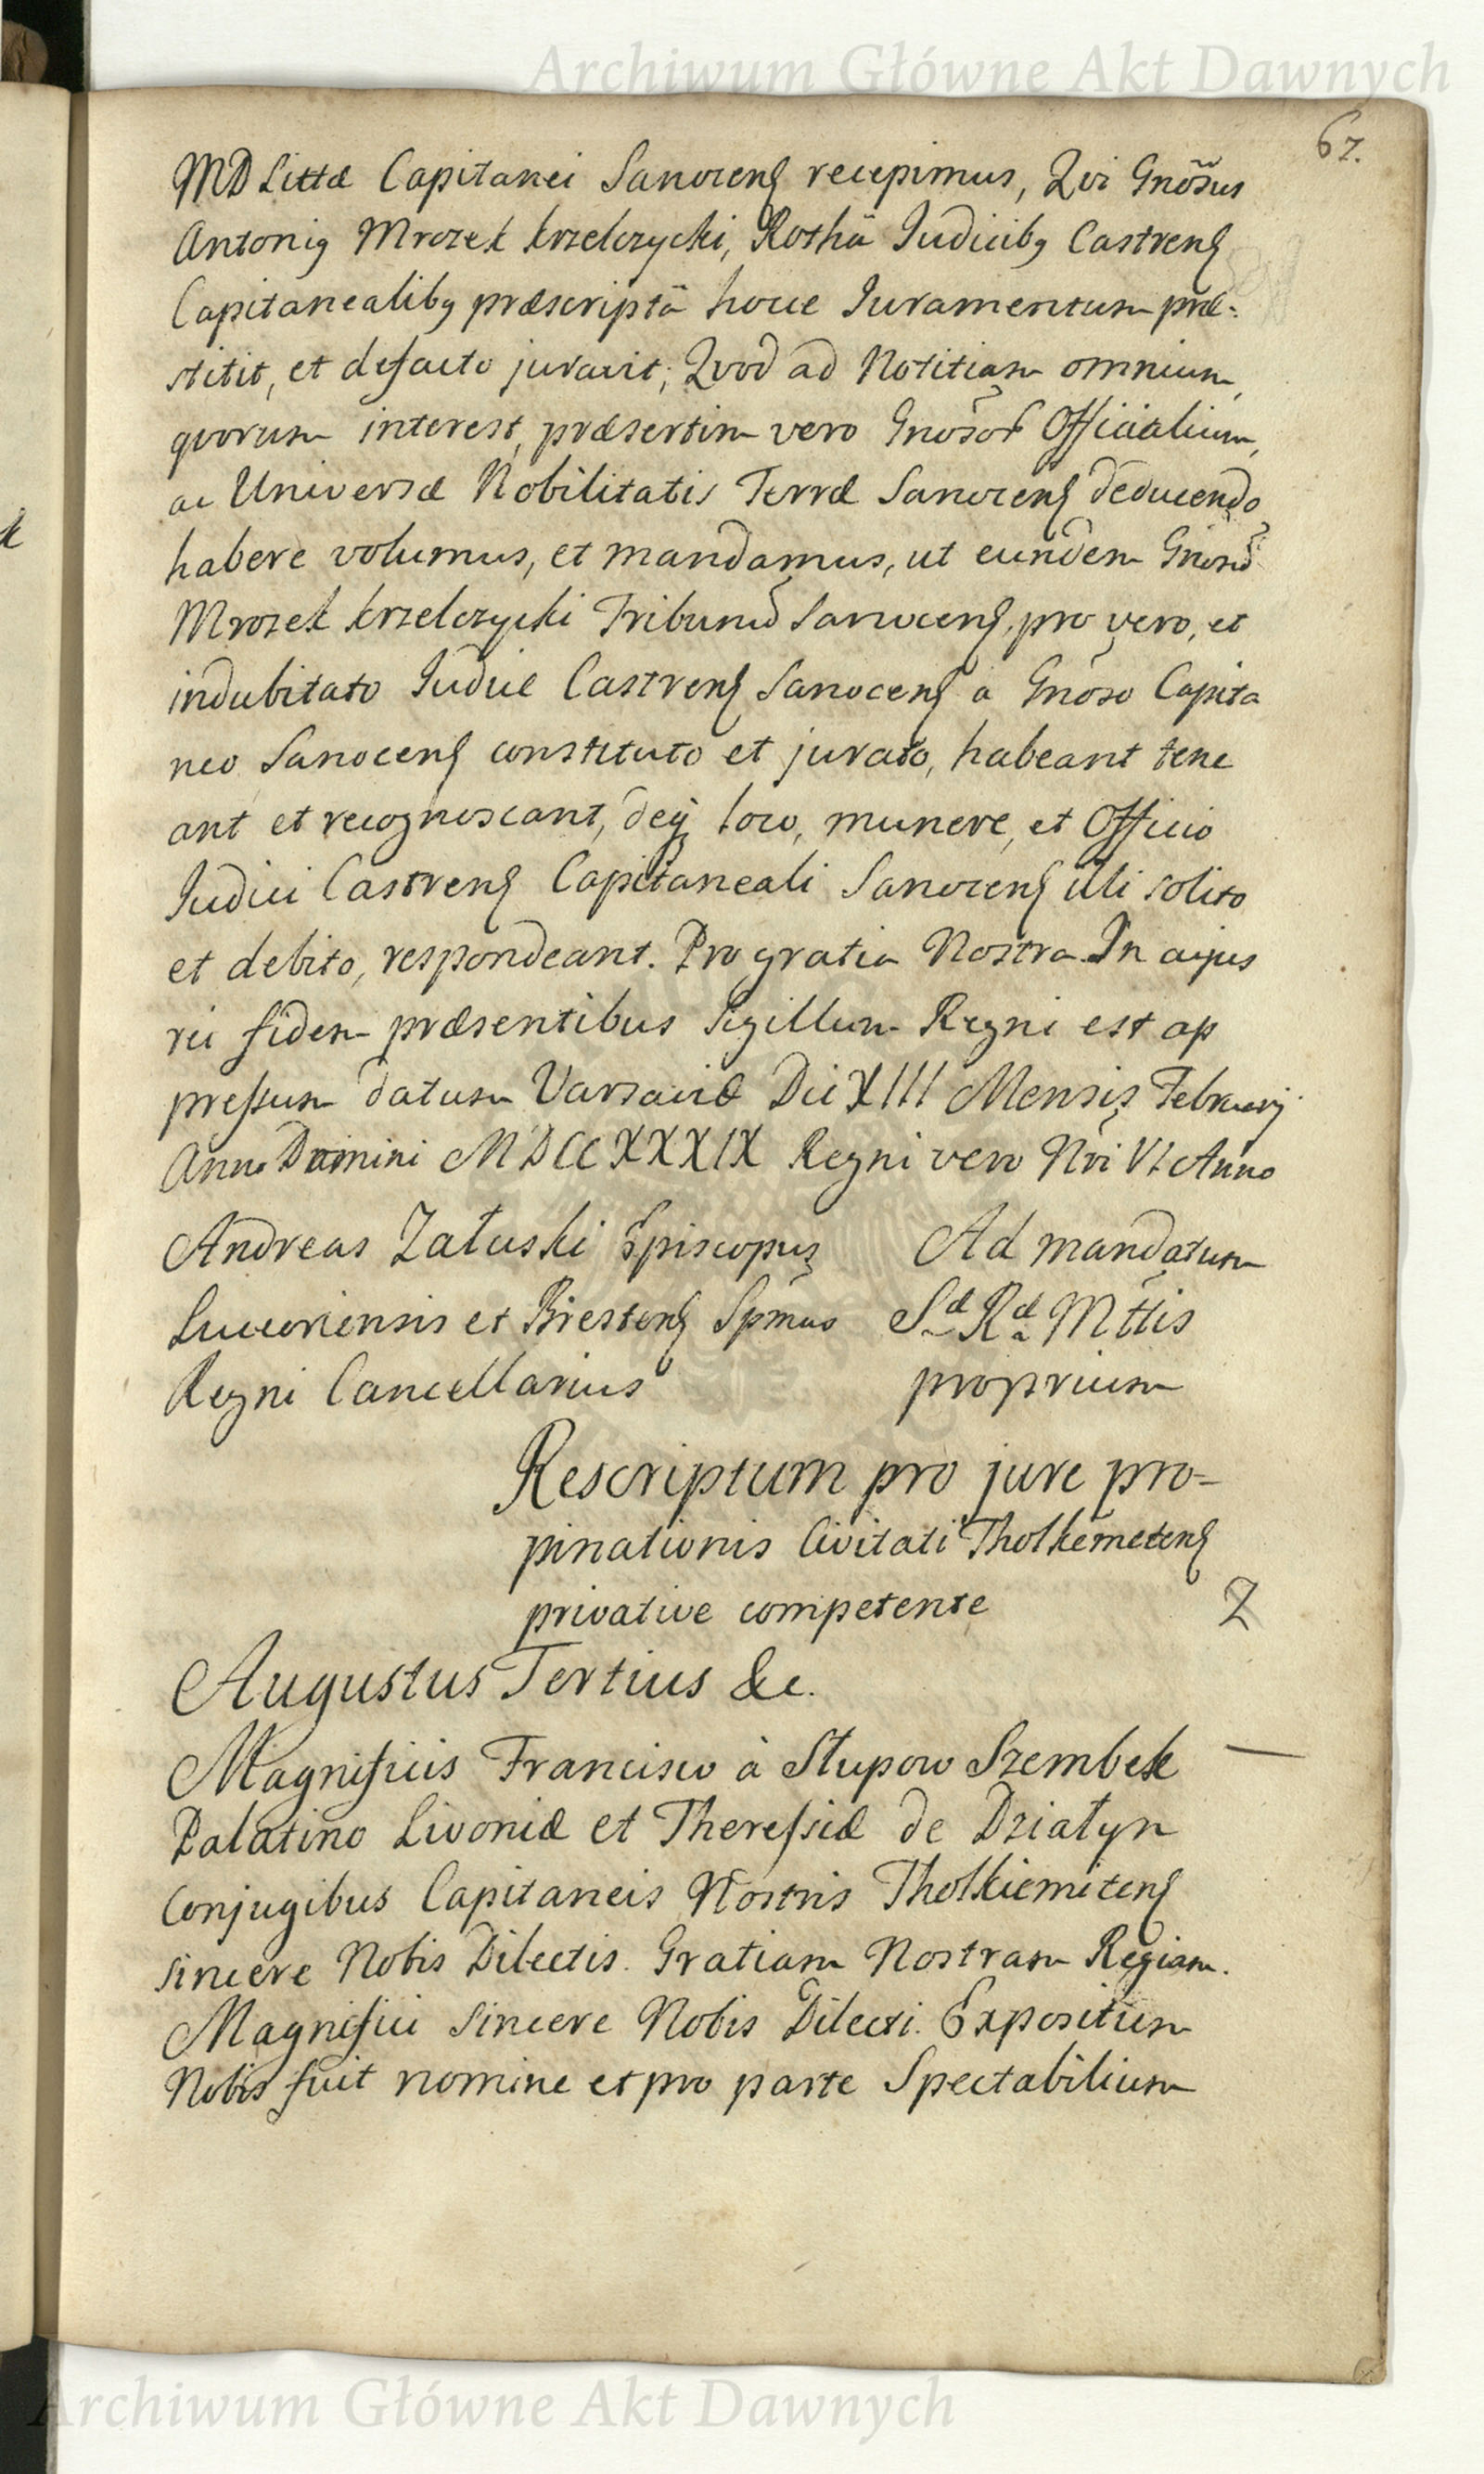 Archiwum Główne Akt Dawnych
67.
MD Littæ Capitanei Sanocens recepimus, Qvi Gnosus
Antonig Mrozek krzelczycki, Rothã Judicibg Castrens
Capitanealibg præscriptã hocce Juramentum præ-
stitit, et defacto juravit; Qvod ad Notitiam omnium,
qvorum interest, præsertim vero Gnosor Officialium,
ac Universæ Nobilitatis Terræ Sanocens deducendo
habere volumus, et mandamus, ut eundem Gnosũ
Mrozek krzelczycki Tribunũ Sanocens, pro vero, et
indubitato Judice Castrens Sanocens a Gnoso Capita
neo Sanocens constituto et jurato, habeant tene
ant et recognoscant, deq loco, munere, et Officio
Judici Castrens Capitaneali Sanocens illi solito
et debito, respondeant. Pro gratia Nostra. In cujus
rei fidem præsentibus Sigillum Regni est ap
pressum datum Varsaviæ Die XIII Mensis Februarij
Anno Domini MDCCXXXIX Regni vero Nri VI Anno
Andreas Załuski Episcopus Ad mandatum
Luceoriensis et Brestens Spmus Sæ Ræ Mttis
Regni Cancellarius proprium
Rescriptum pro jure pro-
pinationis Civitati Tholkemetens
privative competente
Z
Augustus Tertius &c.
Magnificis Francisco à Słupow Szembek
Palatino Livoniæ et Theressiæ de Działyn
Conjugibus Capitaneis Nostris Tholkiemitens
sincere Nobis Dilectis. Gratiam Nostram Regiam.
Magnifici sincere Nobis Dilecti. Expositum
Nobis fuit nomine et pro parte Spectabilium
Archiwum Główne Akt Dawnych